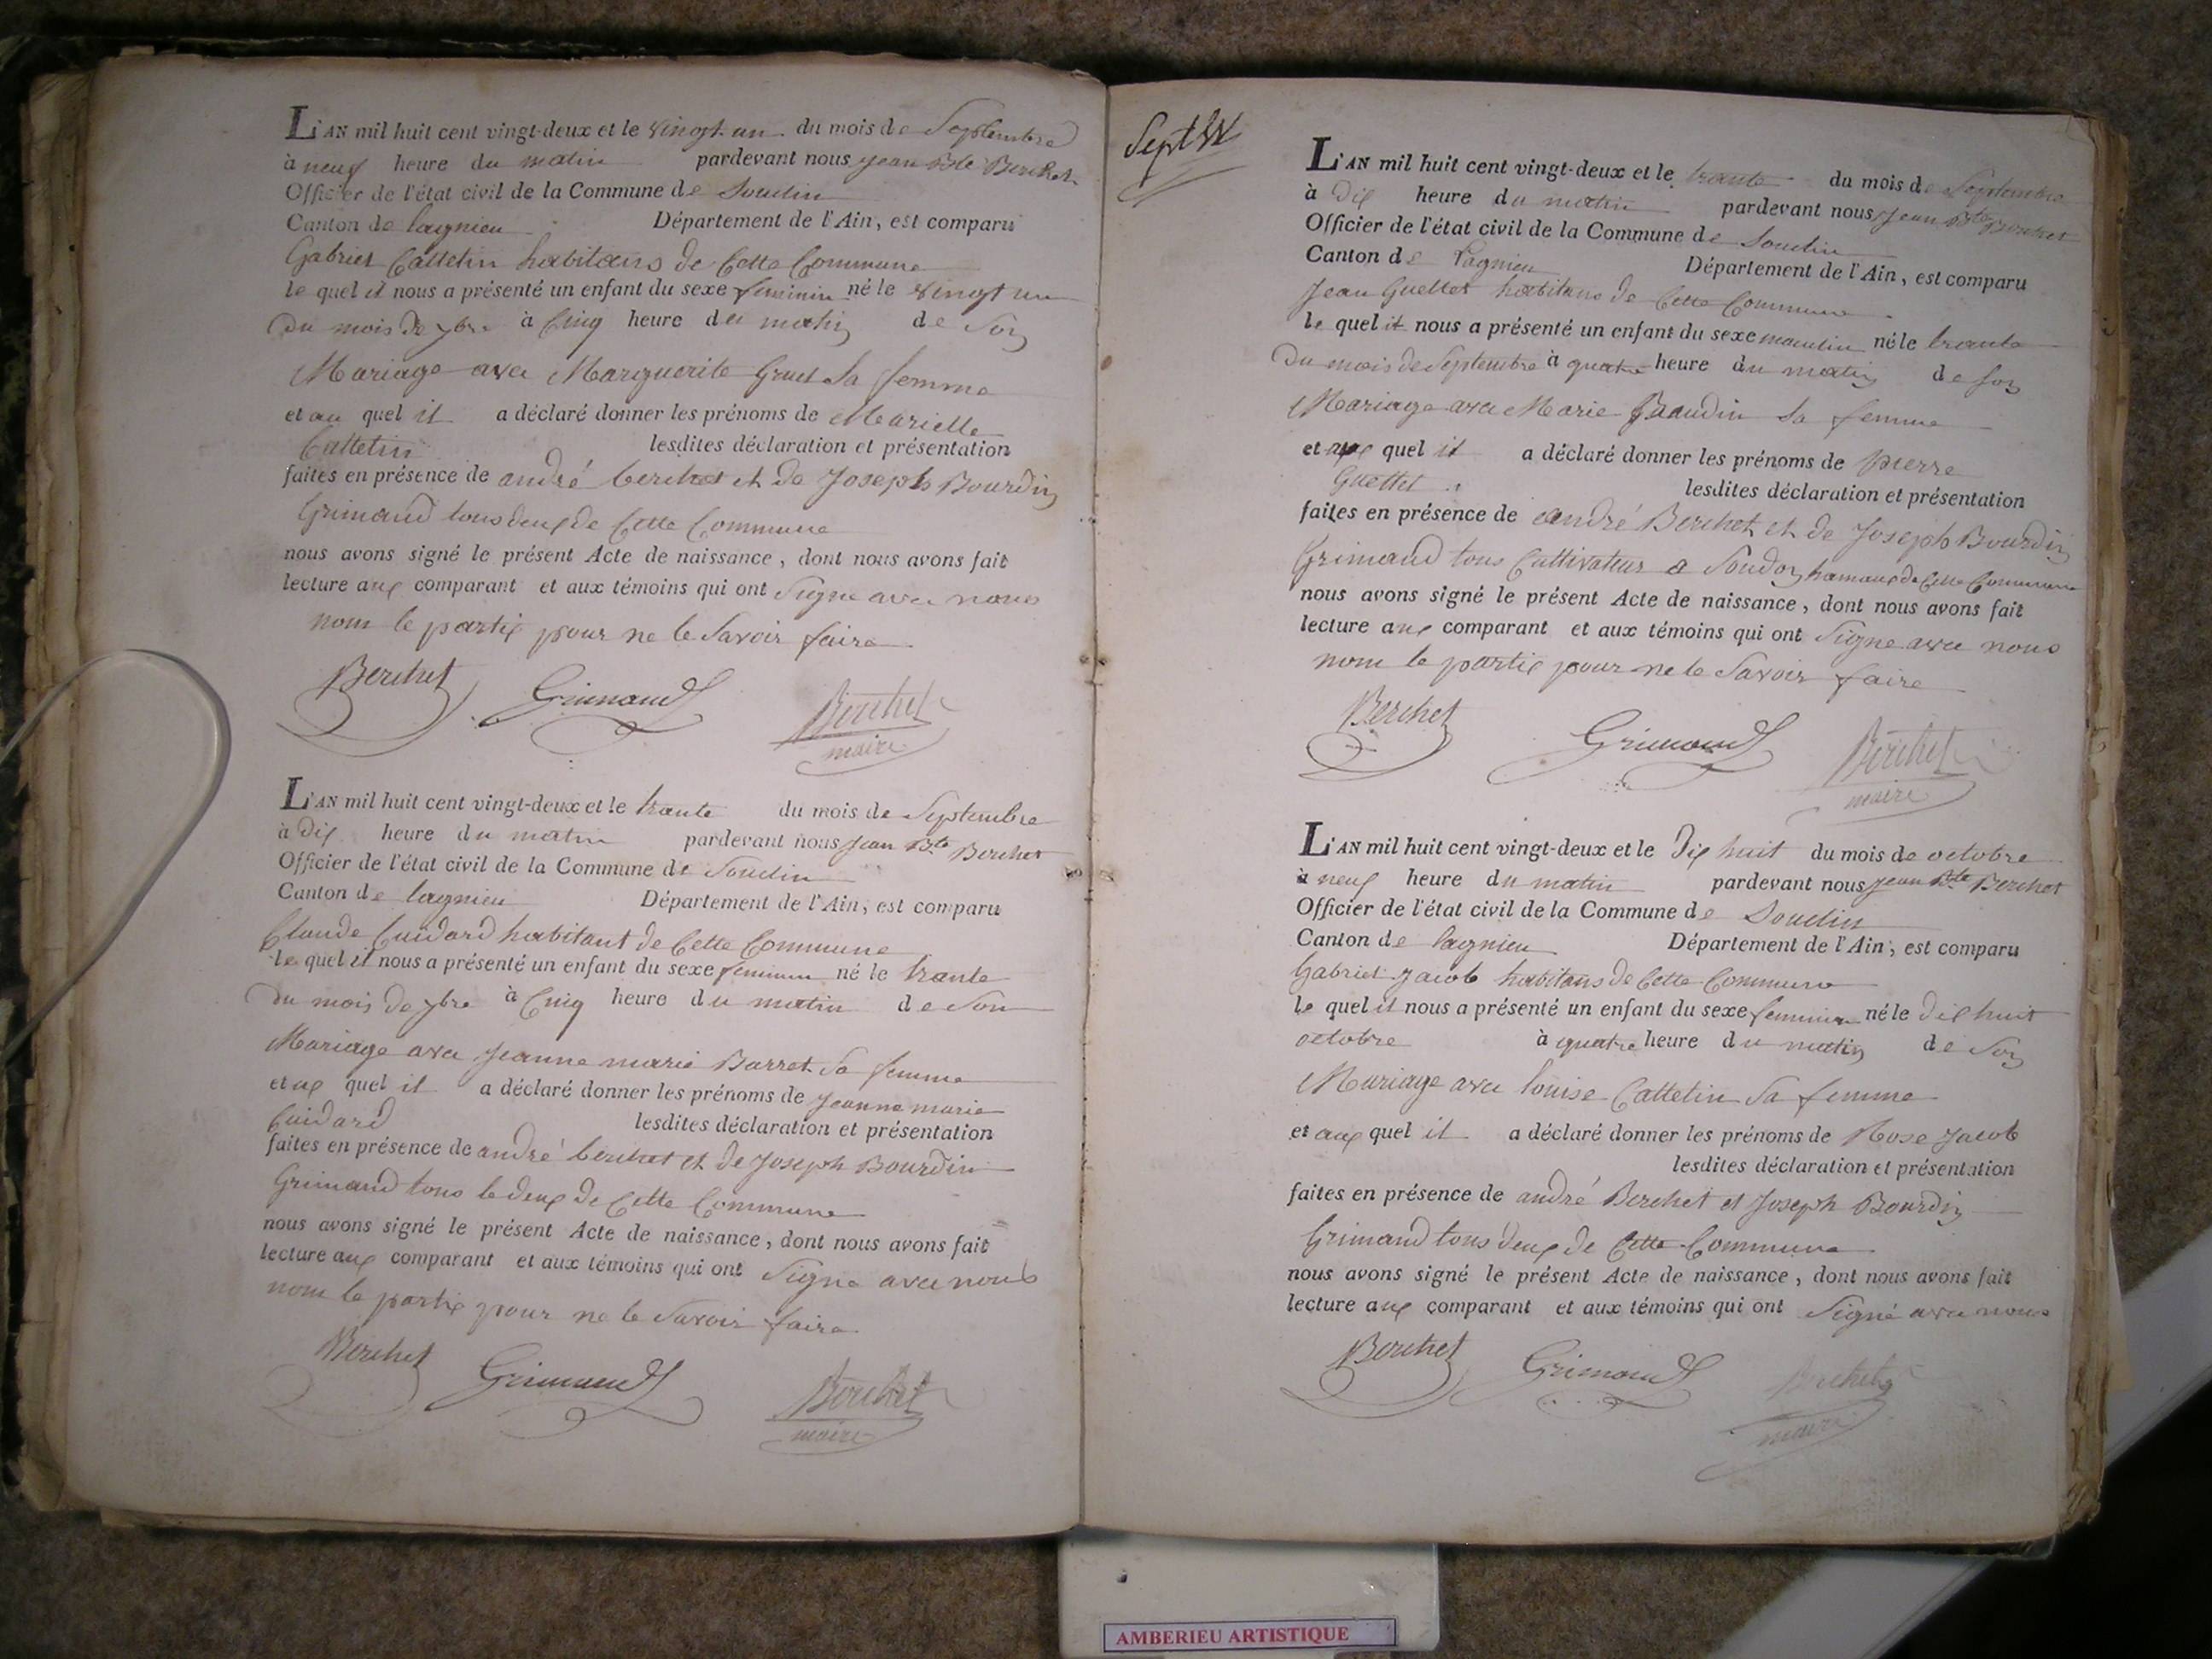 L'AN mil huit cent vingt-deux et le vingt un du mois de Septembre
à neuf heure du matin pardevant nous Jean Bte Berchet
Officier de l'état civil de la Commune de Soudin
Canton de lagnieu Département de l'Ain, est comparu
Gabriel Cattetin habitans de Cette Commune
le quel il nous a présenté un enfant du sexe feminin né le vingt un
du mois de 7bre à Cinq heure du matin de Son
Mariage avec Marguerite Gruet Sa femme
et au quel il a déclaré donner les prénoms de Marielle
Cattetin lesdites déclaration et présentation
faites en présence de andré berchet et de Joseph Bourdin
Grimaud tous deux de Cette Commune
nous avons signé le présent Acte de naissance, dont nous avons fait
lecture aux comparant et aux témoins qui ont Signe avec nous
nom le partix pour ne le Savoir faire
Berchet Grimaud Berchet
maire
L'AN mil huit cent vingt-deux et le trante du mois de Septembre
à Dix heure du matin pardevant nous Jean Bte Berchet
Officier de l'état civil de la Commune de Soudin
Canton de lagnieu Département de l'Ain, est comparu
Claude Cuidard habitant de Cette Commune
le quel il nous a présenté un enfant du sexe feminin né le trante
du mois de 7bre à Cinq heure du matin de Son
Mariage avec Jeanne marie Barret Sa femme
et au quel il a déclaré donner les prénoms de Jeanne marie
Cuidard lesdites déclaration et présentation
faites en présence de andré berchet et de Joseph Bourdin
Grimaud tous le deux de Cette Commune
nous avons signé le présent Acte de naissance, dont nous avons fait
lecture aux comparant et aux témoins qui ont Signe avec nous
nom le partix pour ne le Savoir faire
Berchet Grimaud Berchet
maire
Sept
L'AN mil huit cent vingt-deux et le trante du mois de Septembre
à Dix heure du matin pardevant nous Jean Bte Berchet
Officier de l'état civil de la Commune de Soudin
Canton de Lagnieu Département de l'Ain, est comparu
Jean Guettet habitans de Cette Commune
le quel il nous a présenté un enfant du sexe masculin né le trante
du mois de Septembre à quatre heure du matin de Son
Mariage avec Marie Baudin Sa femme
et aux quel il a déclaré donner les prénoms de pierre
Guettet lesdites déclaration et présentation
faites en présence de andré Berchet et de Joseph Bourdin
Grimaud tous Cultivateur a Soudon hamaux de Cette Commune
nous avons signé le présent Acte de naissance, dont nous avons fait
lecture aux comparant et aux témoins qui ont Signe avec nous
nom le partix pour ne le Savoir faire
Berchet Grimaud Berchet
maire
L'AN mil huit cent vingt-deux et le Dix huit du mois de octobre
à neuf heure du matin pardevant nous Jean Bte Berchet
Officier de l'état civil de la Commune de Soudin
Canton de lagnieu Département de l'Ain, est comparu
Gabriel Jacob habitans de Cette Commune
le quel il nous a présenté un enfant du sexe feminin né le Dix huit
octobre à quatre heure du matin de Son
Mariage avec louise Cattetin Sa femme
et aux quel il a déclaré donner les prénoms de Rose Jacob
lesdites déclaration et présentation
faites en présence de andré Berchet et Joseph Bourdin
Grimaud tous deux de Cette Commune
nous avons signé le présent Acte de naissance, dont nous avons fait
lecture aux comparant et aux témoins qui ont Signé avec nous
Berchet Grimaud Berchet
maire
AMBERIEU ARTISTIQUE